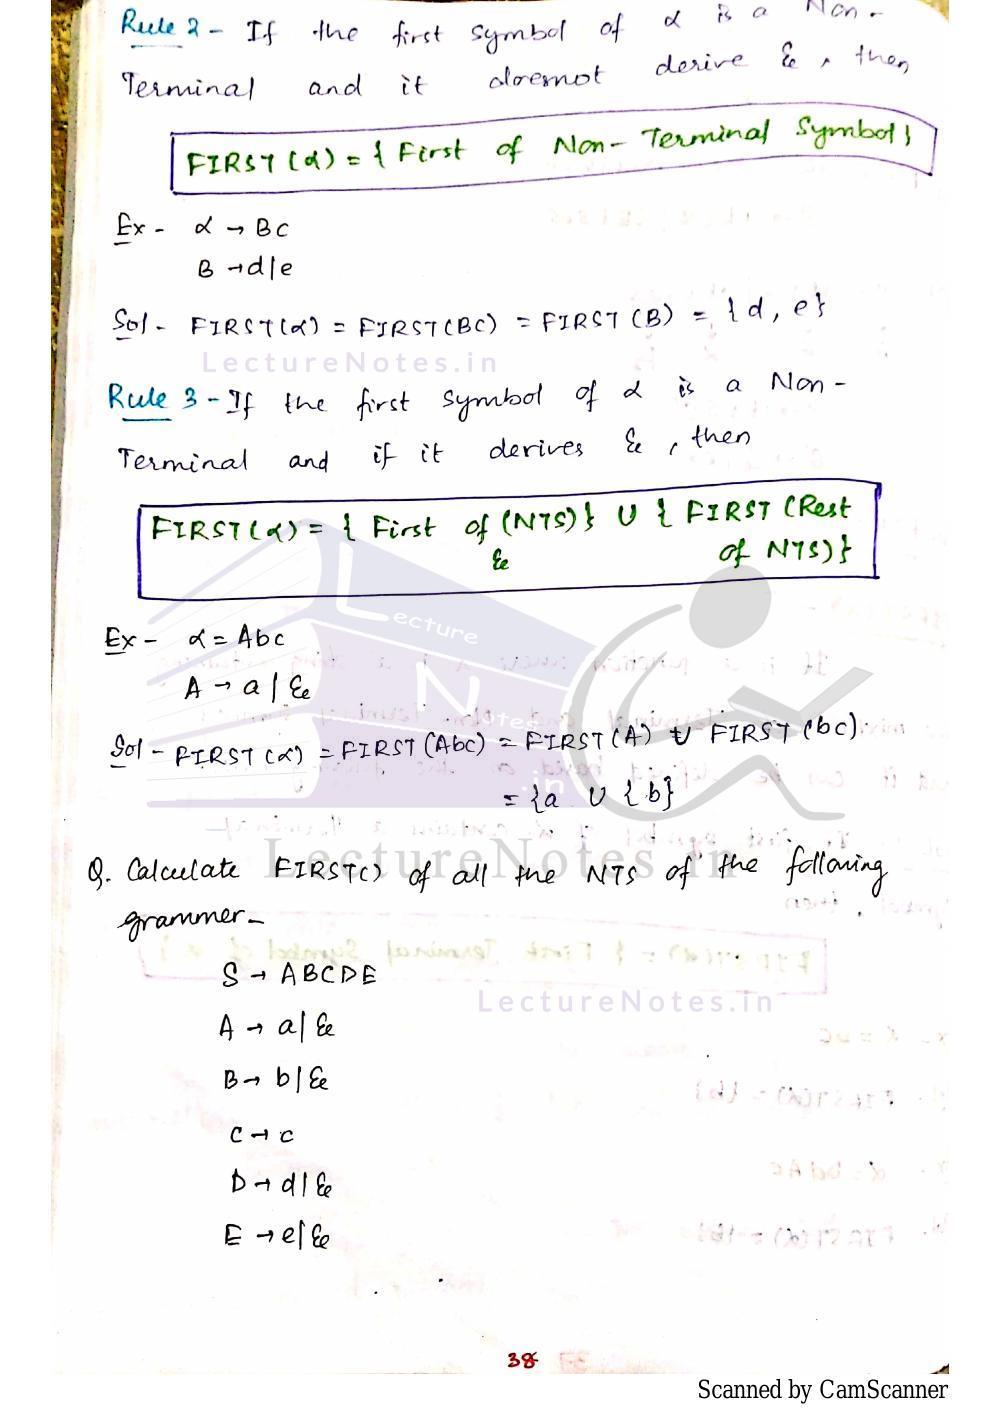 Rule 2 - If the first symbol of α is a Non-
Terminal and it doesnot derive ε, then
FIRST(α) = { First of Non-Terminal Symbol}
Ex - α → Bc
B → d|e
Sol - FIRST(α) = FIRST(Bc) = FIRST(B) = {d, e}
LectureNotes.in
Rule 3 - If the first symbol of α is a Non-
Terminal and if it derives ε, then
FIRST(α) = { First of (NTS)} U { FIRST (Rest
ε of NTS)}
Lecture
Ex - α = Abc
A → a | ε
Notes
Sol - FIRST(α) = FIRST(Abc) = FIRST(A) U FIRST(bc)
.in
= {a U {b}
LectureNotes.in
Q. Calculate FIRST() of all the NTS of the following
grammer-
S → ABCDE
LectureNotes.in
A → a| ε
B → b| ε
C → c
D → d| ε
E → e| ε
38
Scanned by CamScanner